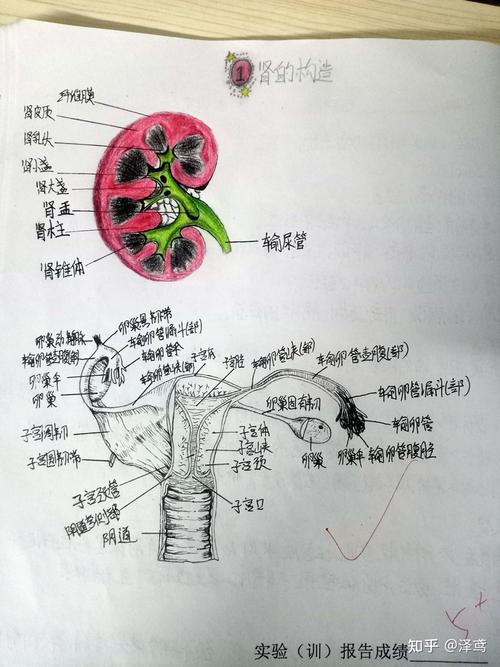 1 肾的构造
纤维膜
肾皮质
肾乳头
肾小盏
肾大盏
肾盂
肾柱
肾锥体
输尿管
卵巢悬韧带
输卵管漏斗(部)
输卵管伞
子宫底
子宫腔
输卵管峡(部)
输卵管壶腹(部)
输卵管漏斗(部)
卵巢伞
卵巢
卵巢固有韧
输卵管
子宫阔韧
子宫体
子宫峡
子宫颈
卵巢
卵巢伞
输卵管腹腔
子宫圆韧带
子宫颈管
子宫口
阴道
5+
实验（训）报告成绩
知乎 @泽鸢